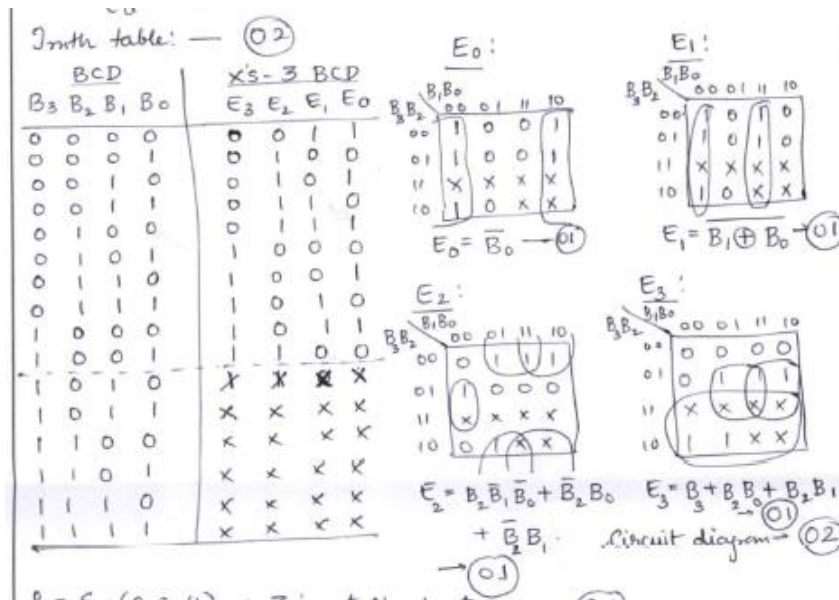 Truth table: — 02
BCD X's-3 BCD
B3 B2 B1 B0 E3 E2 E1 E0
0 0 0 0 0 0 1 1
0 0 0 1 0 1 0 0
0 0 1 0 0 1 0 1
0 0 1 1 0 1 1 0
0 1 0 0 0 1 1 1
0 1 0 1 1 0 0 0
0 1 1 0 1 0 0 1
0 1 1 1 1 0 1 0
1 0 0 0 1 0 1 1
1 0 0 1 1 1 0 0
1 0 1 0 X X X X
1 0 1 1 X X X X
1 1 0 0 X X X X
1 1 0 1 X X X X
1 1 1 0 X X X X
1 1 1 1 X X X X
E0:
B1B0
B3B2 00 01 11 10
00 1 0 0 1
01 1 0 0 1
11 X X X X
10 1 0 X X
E0 = B̅0 → 01
E1:
B1B0
B3B2 00 01 11 10
00 1 0 1 0
01 1 0 1 0
11 X X X X
10 1 0 X X
E1 = B̅1̅ ̅⊕̅ ̅B̅0 → 01
E2:
B1B0
B3B2 00 01 11 10
00 0 1 1 1
01 1 0 0 0
11 X X X X
10 0 1 X X
E2 = B2B̅1B̅0 + B̅2B0
+ B̅2B1.
→ 01
E3:
B1B0
B3B2 00 01 11 10
00 0 0 0 0
01 0 1 1 1
11 X X X X
10 1 1 X X
E3 = B3 + B2B0 + B2B1
→ 01
Circuit diagram → 02